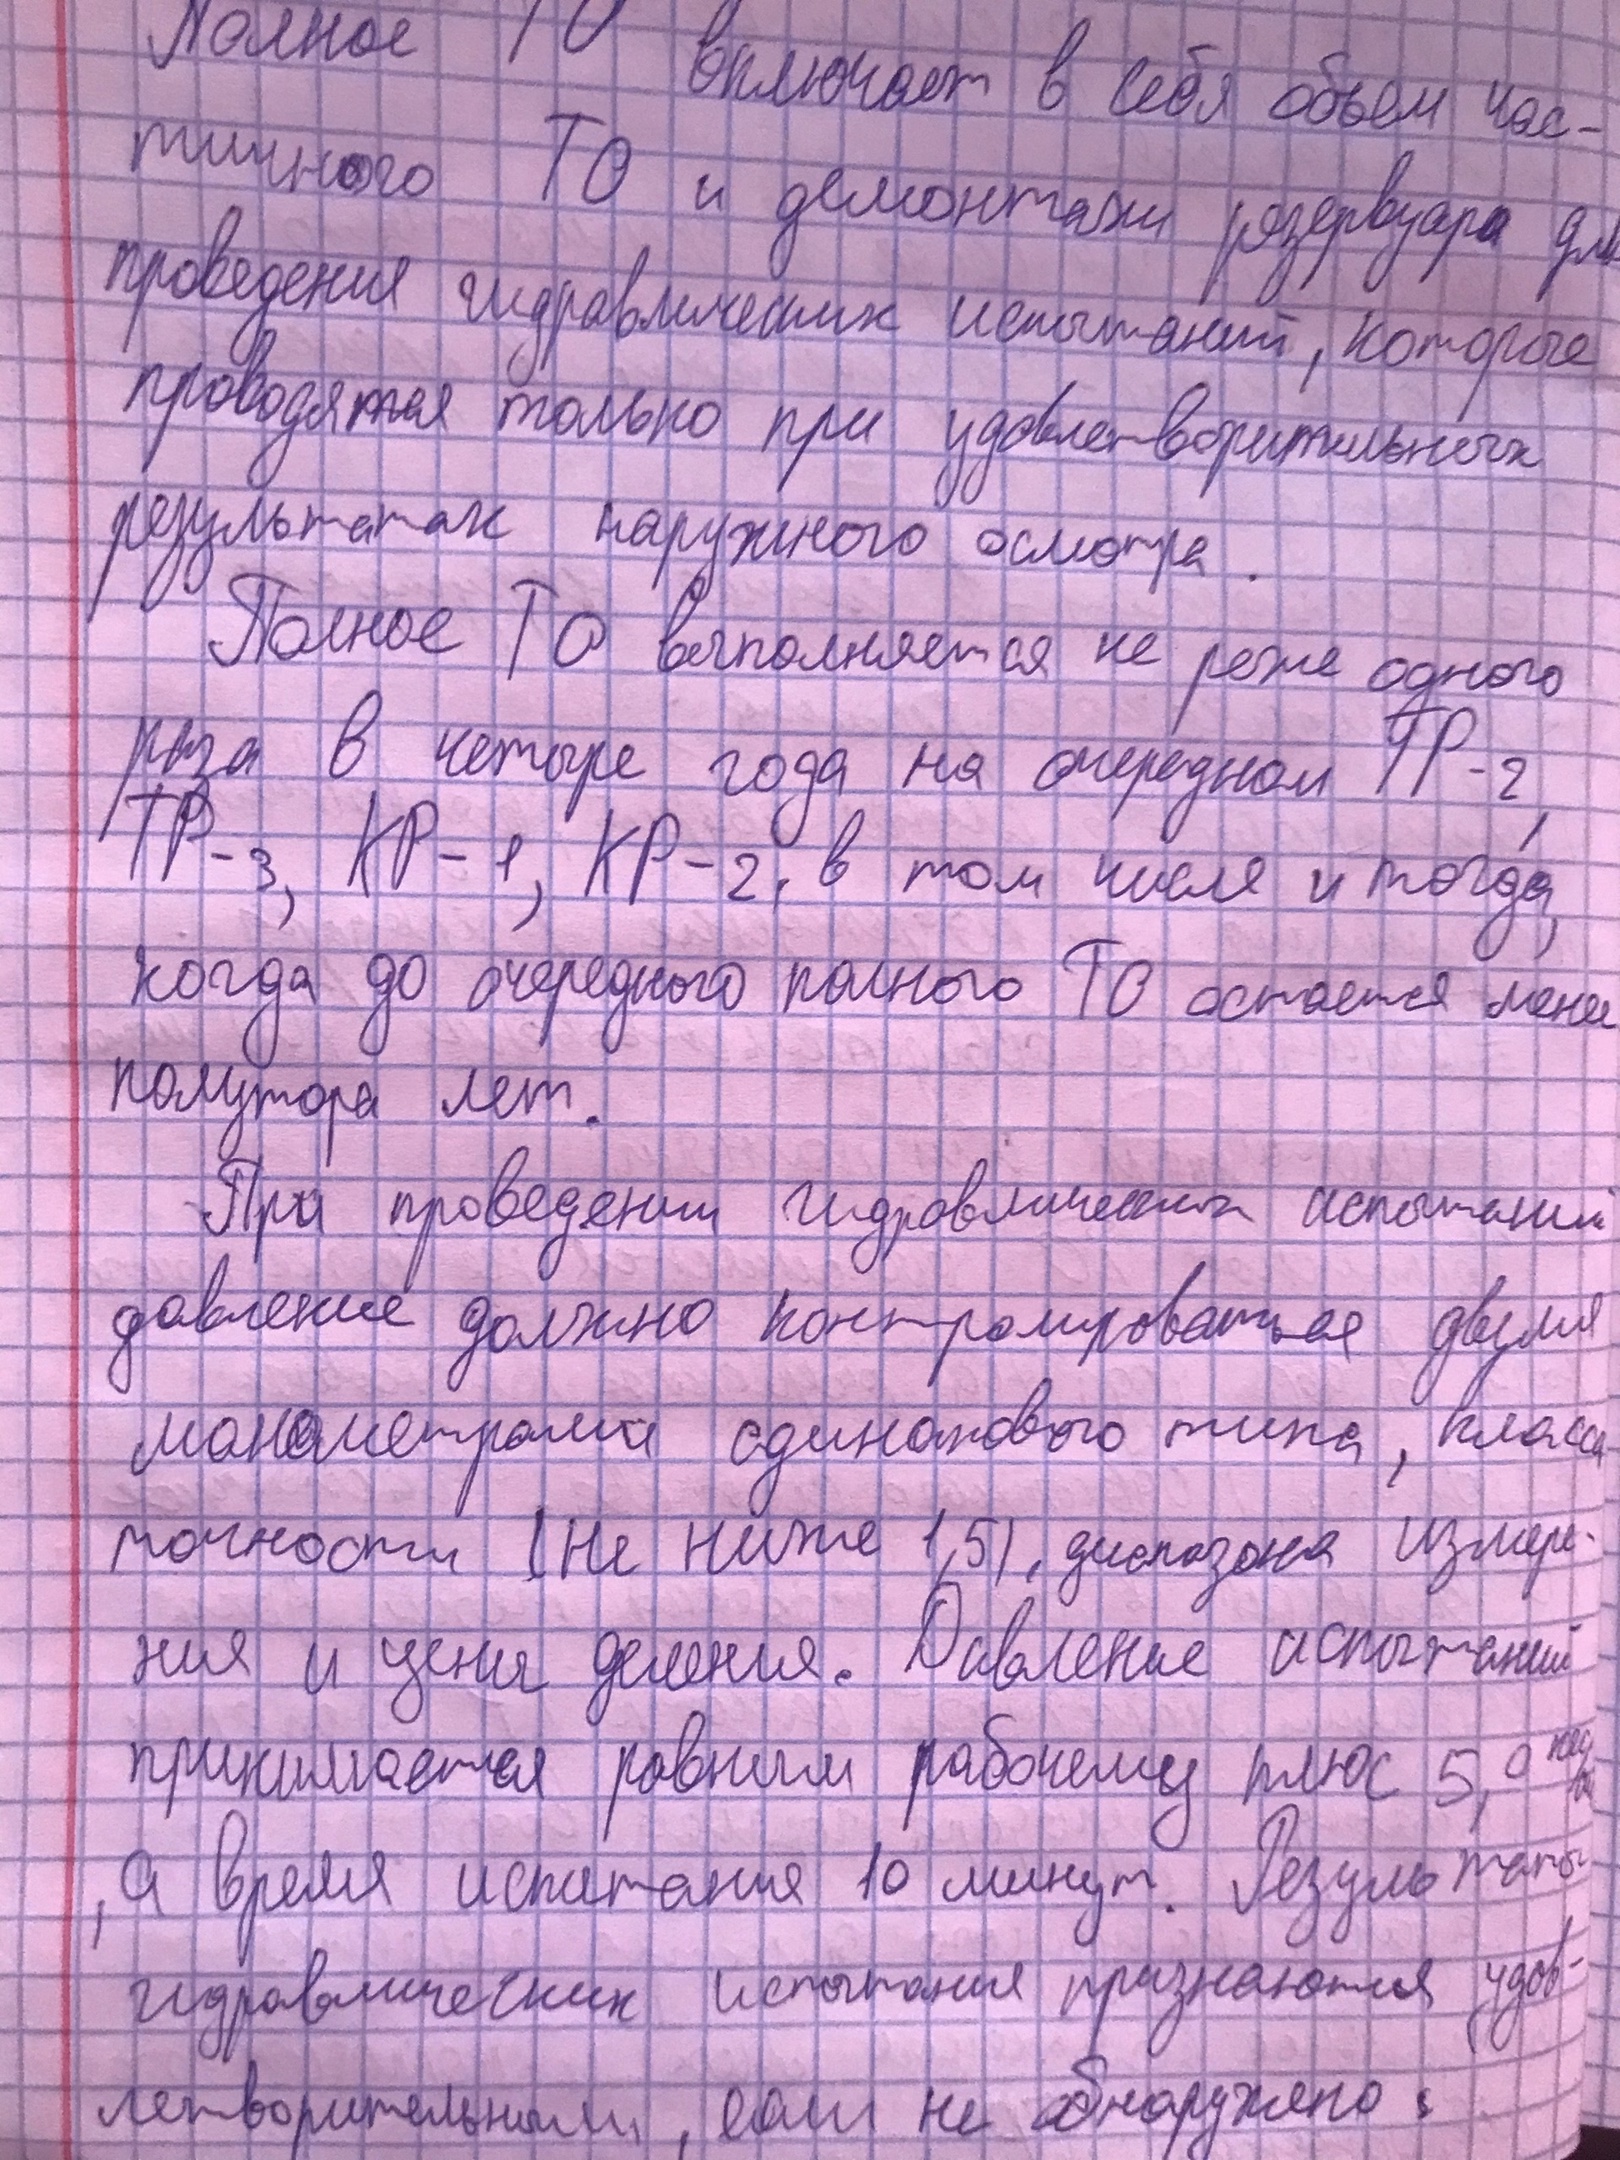 Полное ТО включает в себя объем час-
тичного ТО и демонтаж резервуара для
проведения гидравлических испытаний, которые
проводятся только при удовлетворительных
результатах наружного осмотра.
Полное ТО выполняется не реже одного
раза в четыре года на очередном ТР-2,
ТР-3, КР-1, КР-2, в том числе и тогда,
когда до очередного полного ТО остается менее
полутора лет.
При проведении гидравлических испытаний
давление должно контролироваться двумя
манометрами одинакового типа, класса
точности (не ниже 1,5), диапазона измере-
ния и цены деления. Давление испытаний
принимается равным рабочему плюс 5,0
, а время испытания 10 минут. Результаты
гидравлических испытания признаются удов-
летворительными, если не обнаружено: